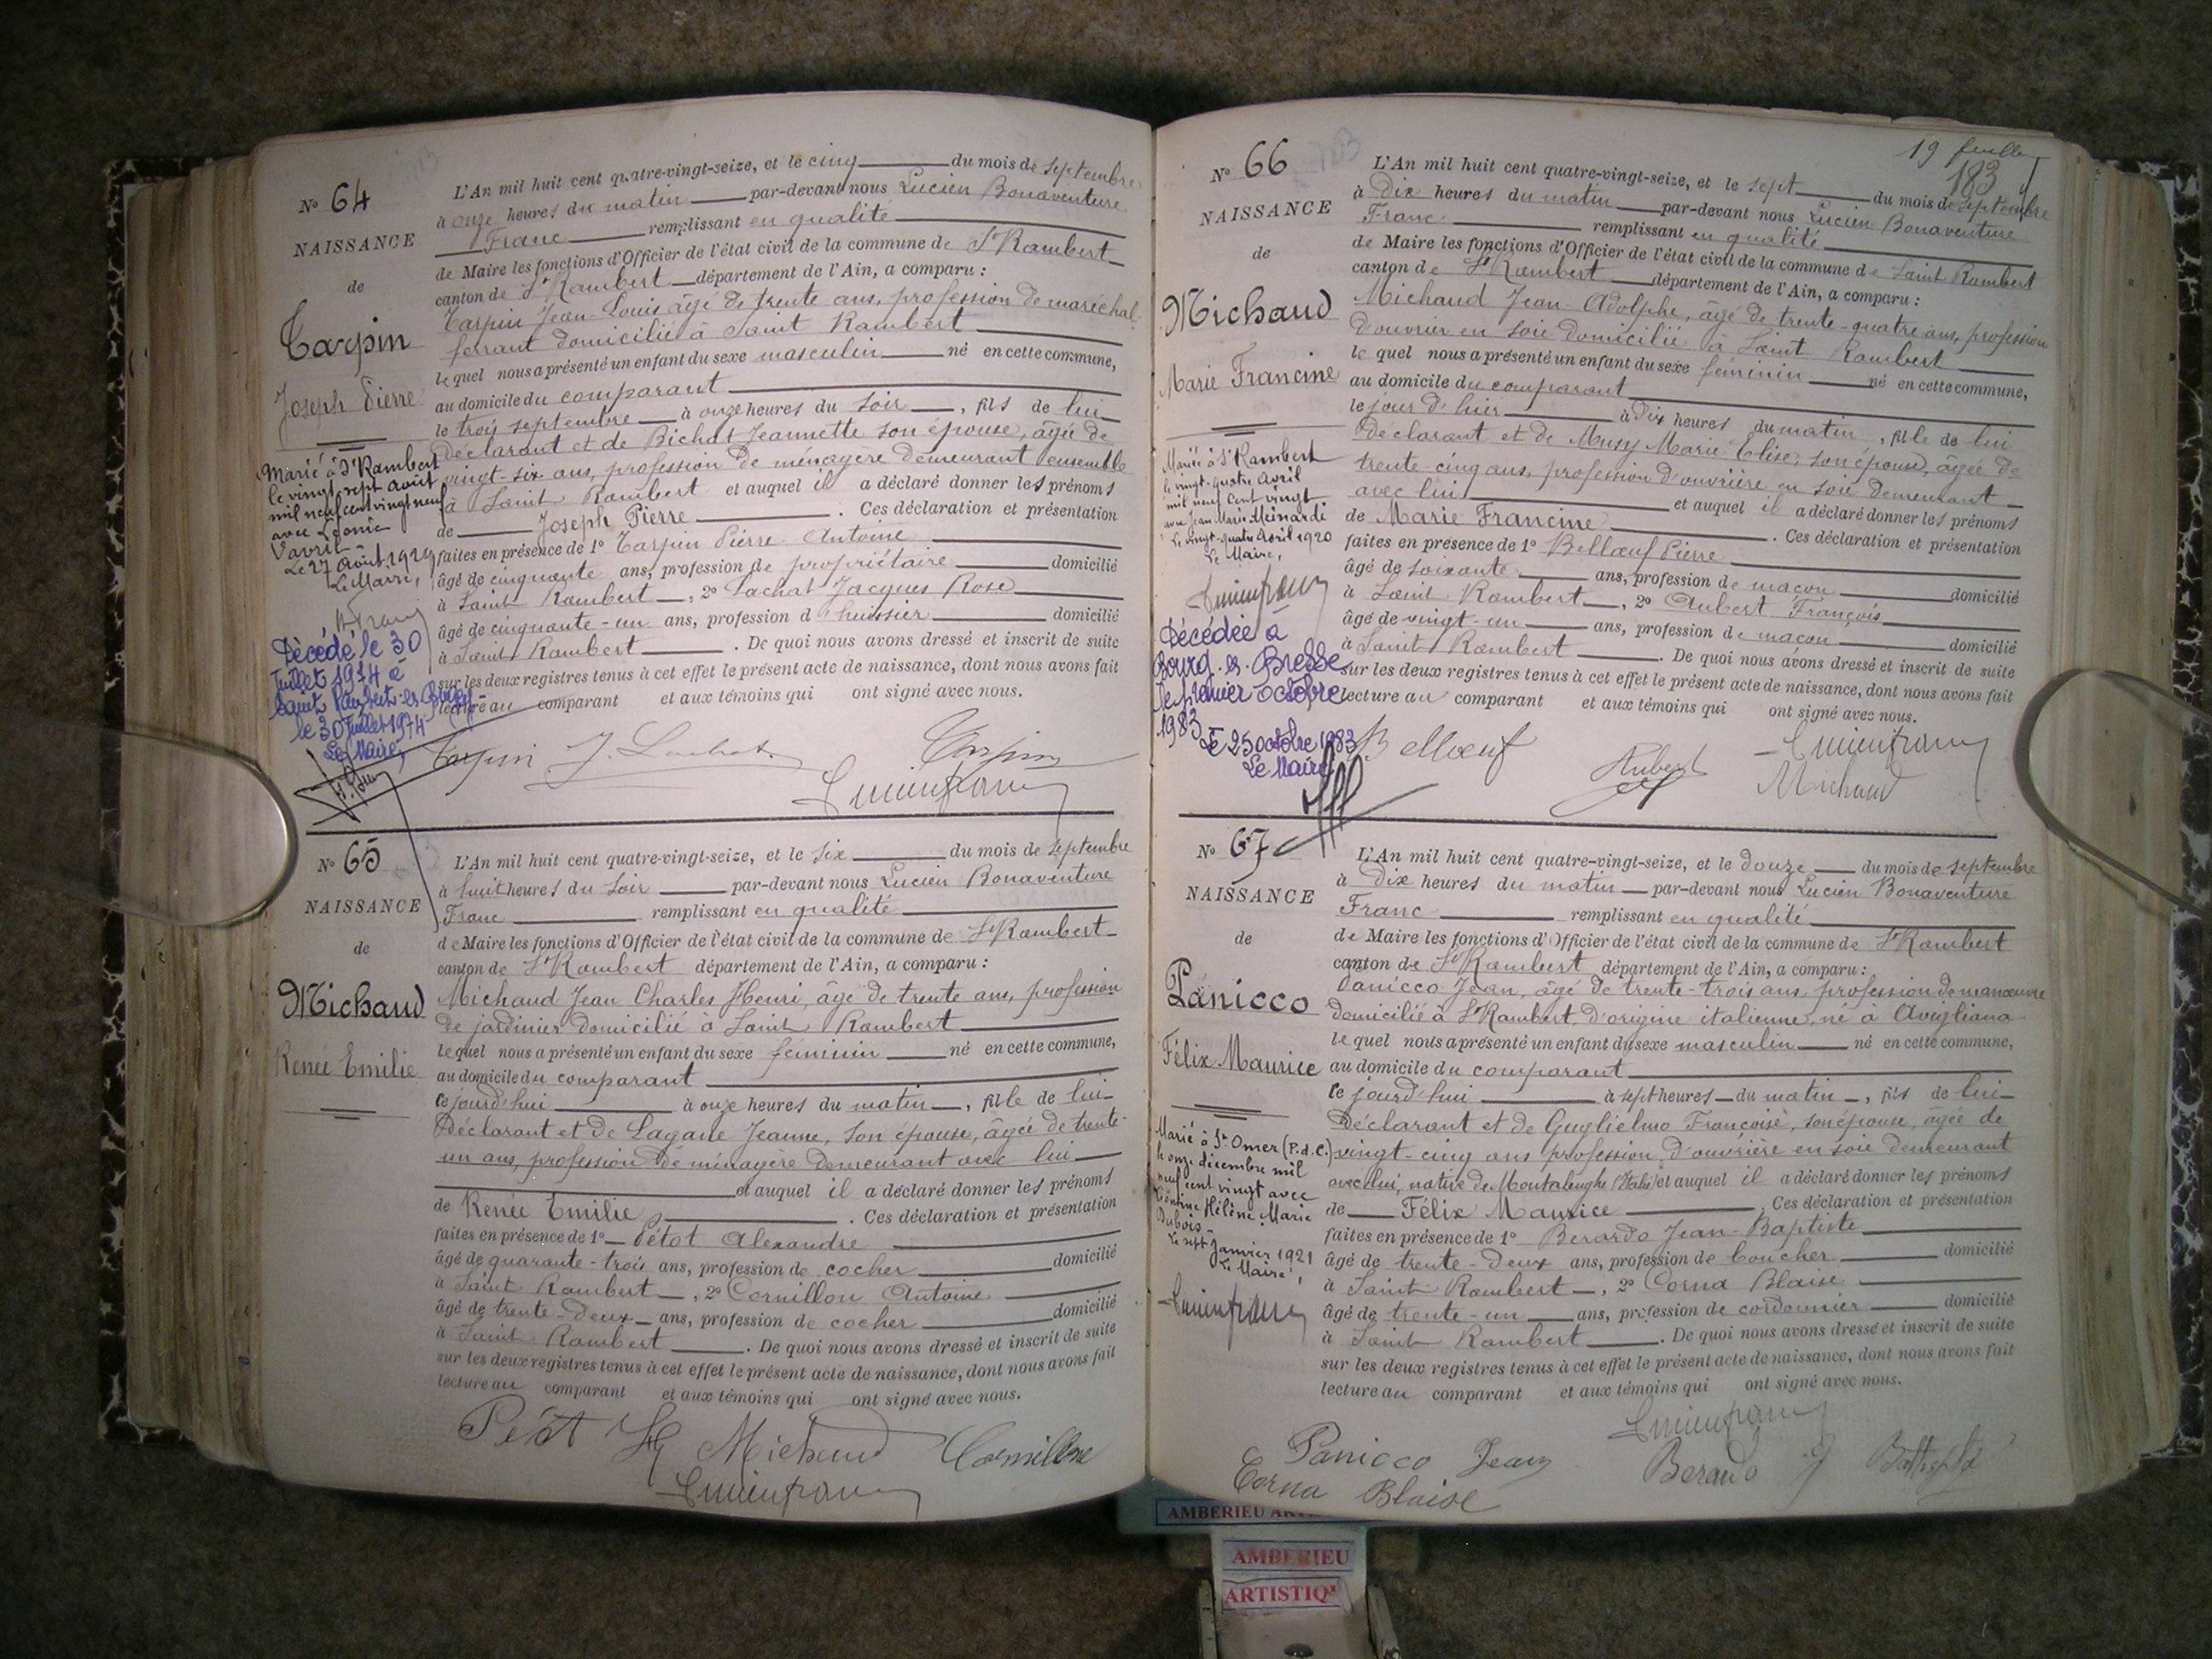 N° 64
NAISSANCE
de
Tarpin
Joseph Pierre
Marié à St Rambert
le vingt-sept août
mil neuf cent vingt neuf
avec Léonie
Vavril
Le 27 Août 1929
Le Maire,
Décédé le 30
Juillet 1974 à
Saint Rambert-en-Bugey
le 30 Juillet 1974
Le Maire,
L'An mil huit cent quatre-vingt-seize, et le cinq du mois de septembre
à onze heures du matin par-devant nous Lucien Bonaventure
Franc remplissant en qualité
de Maire les fonctions d'Officier de l'état civil de la commune de St Rambert
canton de St Rambert département de l'Ain, a comparu :
Tarpin Jean-Louis âgé de trente ans, profession de maréchal-
ferrant domicilié à Saint Rambert
lequel nous a présenté un enfant du sexe masculin né en cette commune,
au domicile du comparant
le trois septembre à onze heures du soir, fils de lui
déclarant et de Bichat Jeannette son épouse, âgée de
vingt-six ans, profession de ménagère demeurant ensemble
à Saint Rambert et auquel il a déclaré donner les prénoms
de Joseph Pierre. Ces déclaration et présentation
faites en présence de 1° Tarpin Pierre Antoine
âgé de cinquante ans, profession de propriétaire domicilié
à Saint Rambert, 2° Lachat Jacques Rose
âgé de cinquante-un ans, profession d'huissier domicilié
à Saint Rambert. De quoi nous avons dressé et inscrit de suite
sur les deux registres tenus à cet effet le présent acte de naissance, dont nous avons fait
lecture au comparant et aux témoins qui ont signé avec nous.
Tarpin J. Lachat Tarpin
Lucien franc
N° 65
NAISSANCE
de
Michaud
Renée Emilie
L'An mil huit cent quatre-vingt-seize, et le six du mois de septembre
à huit heures du soir par-devant nous Lucien Bonaventure
Franc remplissant en qualité
de Maire les fonctions d'Officier de l'état civil de la commune de St Rambert
canton de St Rambert département de l'Ain, a comparu :
Michaud Jean Charles Henri, âgé de trente ans, profession
de jardinier domicilié à Saint Rambert
lequel nous a présenté un enfant du sexe féminin né en cette commune,
au domicile du comparant
ce jourd'hui à onze heures du matin, fille de lui
déclarant et de Lagane Jeanne, son épouse, âgée de trente-
un ans, profession de ménagère demeurant avec lui
et auquel il a déclaré donner les prénoms
de Renée Emilie. Ces déclaration et présentation
faites en présence de 1° Pétot Alexandre
âgé de quarante-trois ans, profession de cocher domicilié
à Saint Rambert, 2° Cornillon Antoine
âgé de trente-deux ans, profession de cocher domicilié
à Saint Rambert. De quoi nous avons dressé et inscrit de suite
sur les deux registres tenus à cet effet le présent acte de naissance, dont nous avons fait
lecture au comparant et aux témoins qui ont signé avec nous.
Pétot Michaud Cornillon
Lucien franc
19 feuillet
183
N° 66
NAISSANCE
de
Michaud
Marie Francine
Mariée à St Rambert
le vingt-quatre Avril
mil neuf cent vingt
avec Jean Marie Meinardi
Le vingt-quatre Avril 1920
Le Maire,
Lucien franc
Décédée à
Bourg-en-Bresse
le premier octobre
1983
Le 25 octobre 1983
Le Maire
L'An mil huit cent quatre-vingt-seize, et le sept du mois de septembre
à Dix heures du matin par-devant nous Lucien Bonaventure
Franc remplissant en qualité
de Maire les fonctions d'Officier de l'état civil de la commune de Saint Rambert
canton de St Rambert département de l'Ain, a comparu :
Michaud Jean-Adolphe, âgé de trente-quatre ans, profession
d'ouvrier en soie domicilié à Saint Rambert
lequel nous a présenté un enfant du sexe féminin né en cette commune,
au domicile du comparant
le jour d'hier à dix heures du matin, fille de lui
déclarant et de Musy Marie Elise, son épouse, âgée de
trente-cinq ans, profession d'ouvrière en soie demeurant
avec lui et auquel il a déclaré donner les prénoms
de Marie Francine. Ces déclaration et présentation
faites en présence de 1° Bellœuf Pierre
âgé de soixante ans, profession de maçon domicilié
à Saint Rambert, 2° Aubert François
âgé de vingt-un ans, profession de maçon domicilié
à Saint Rambert. De quoi nous avons dressé et inscrit de suite
sur les deux registres tenus à cet effet le présent acte de naissance, dont nous avons fait
lecture au comparant et aux témoins qui ont signé avec nous.
Bellœuf Aubert Lucien franc
Michaud
N° 67
NAISSANCE
de
Panicco
Félix Maurice
Marié à St Omer (P.d.C.)
le onze décembre mil
neuf cent vingt avec
Léontine Hélène Marie
Dubois
Le sept Janvier 1921
Le Maire,
Lucien franc
L'An mil huit cent quatre-vingt-seize, et le douze du mois de septembre
à Dix heures du matin par-devant nous Lucien Bonaventure
Franc remplissant en qualité
de Maire les fonctions d'Officier de l'état civil de la commune de St Rambert
canton de St Rambert département de l'Ain, a comparu :
Panicco Jean, âgé de trente-trois ans, profession de manœuvre
domicilié à St Rambert, d'origine italienne, né à Avigliana
lequel nous a présenté un enfant du sexe masculin né en cette commune,
au domicile du comparant
ce jourd'hui à sept heures du matin, fils de lui
déclarant et de Guglielmo Françoise, son épouse, âgée de
vingt-cinq ans profession d'ouvrière en soie demeurant
avec lui, native de Montalenghe (Italie) et auquel il a déclaré donner les prénoms
de Félix Maurice. Ces déclaration et présentation
faites en présence de 1° Berardo Jean-Baptiste
âgé de trente-deux ans, profession de boucher domicilié
à Saint Rambert, 2° Corna Blaise
âgé de trente-un ans, profession de cordonnier domicilié
à Saint Rambert. De quoi nous avons dressé et inscrit de suite
sur les deux registres tenus à cet effet le présent acte de naissance, dont nous avons fait
lecture au comparant et aux témoins qui ont signé avec nous.
Lucien franc
Panicco Jean Berardo
Corna Blaise
AMBERIEU
AMBERIEU
ARTISTIQ